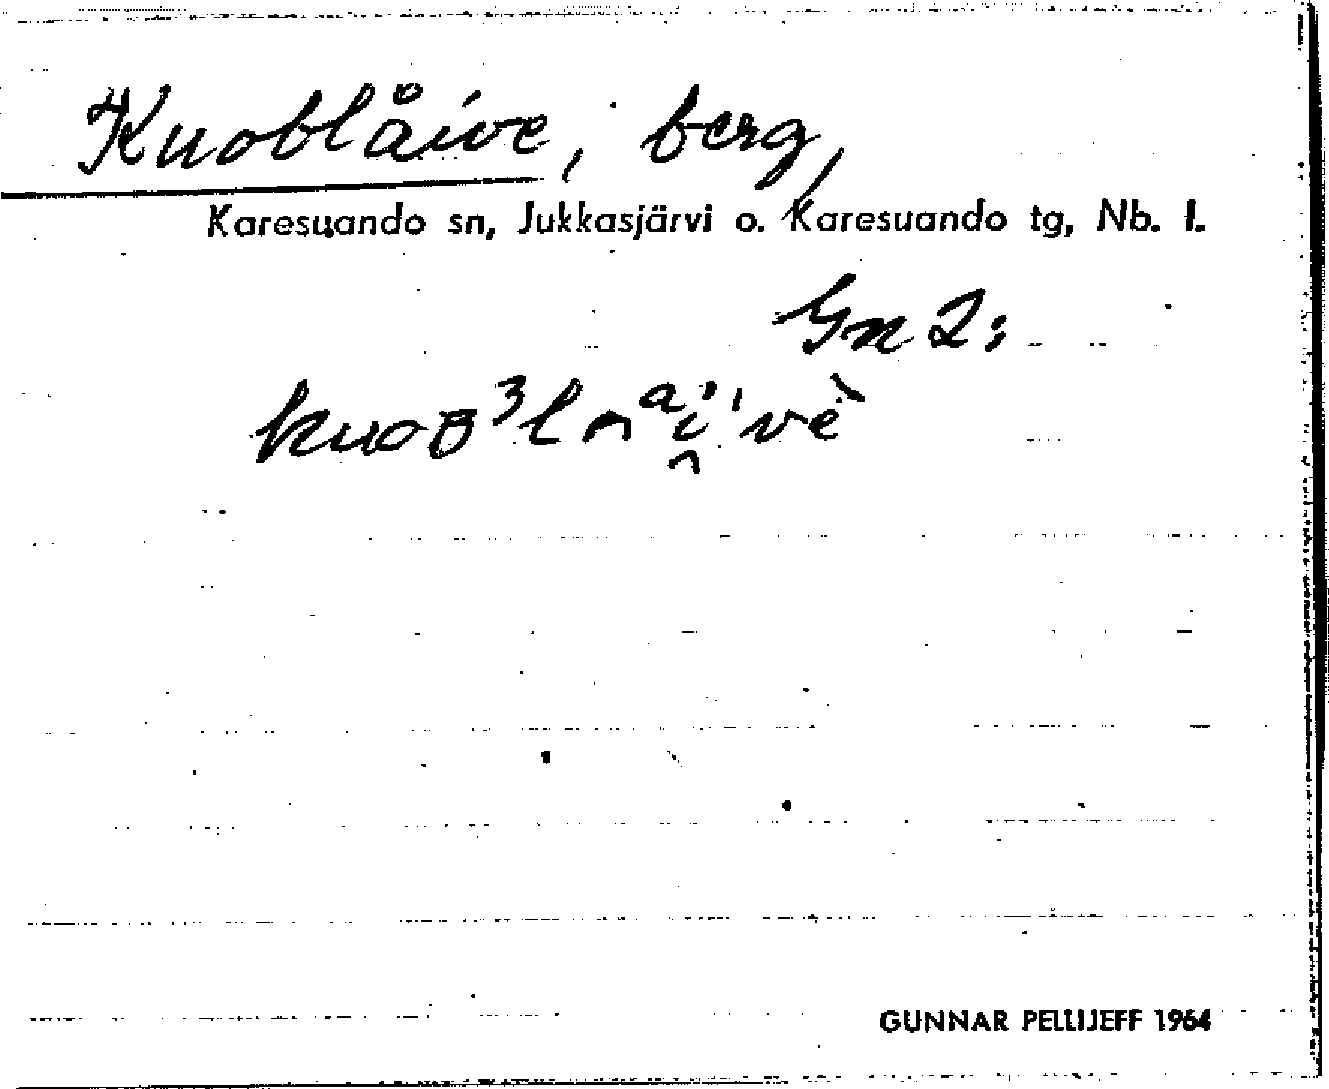 Kuoblåive, berg,
Karesuando sn, Jukkasjärvi o. Karesuando tg, Nb. l.
Gn 2:
GUNNAR PELLIJEFF 1964